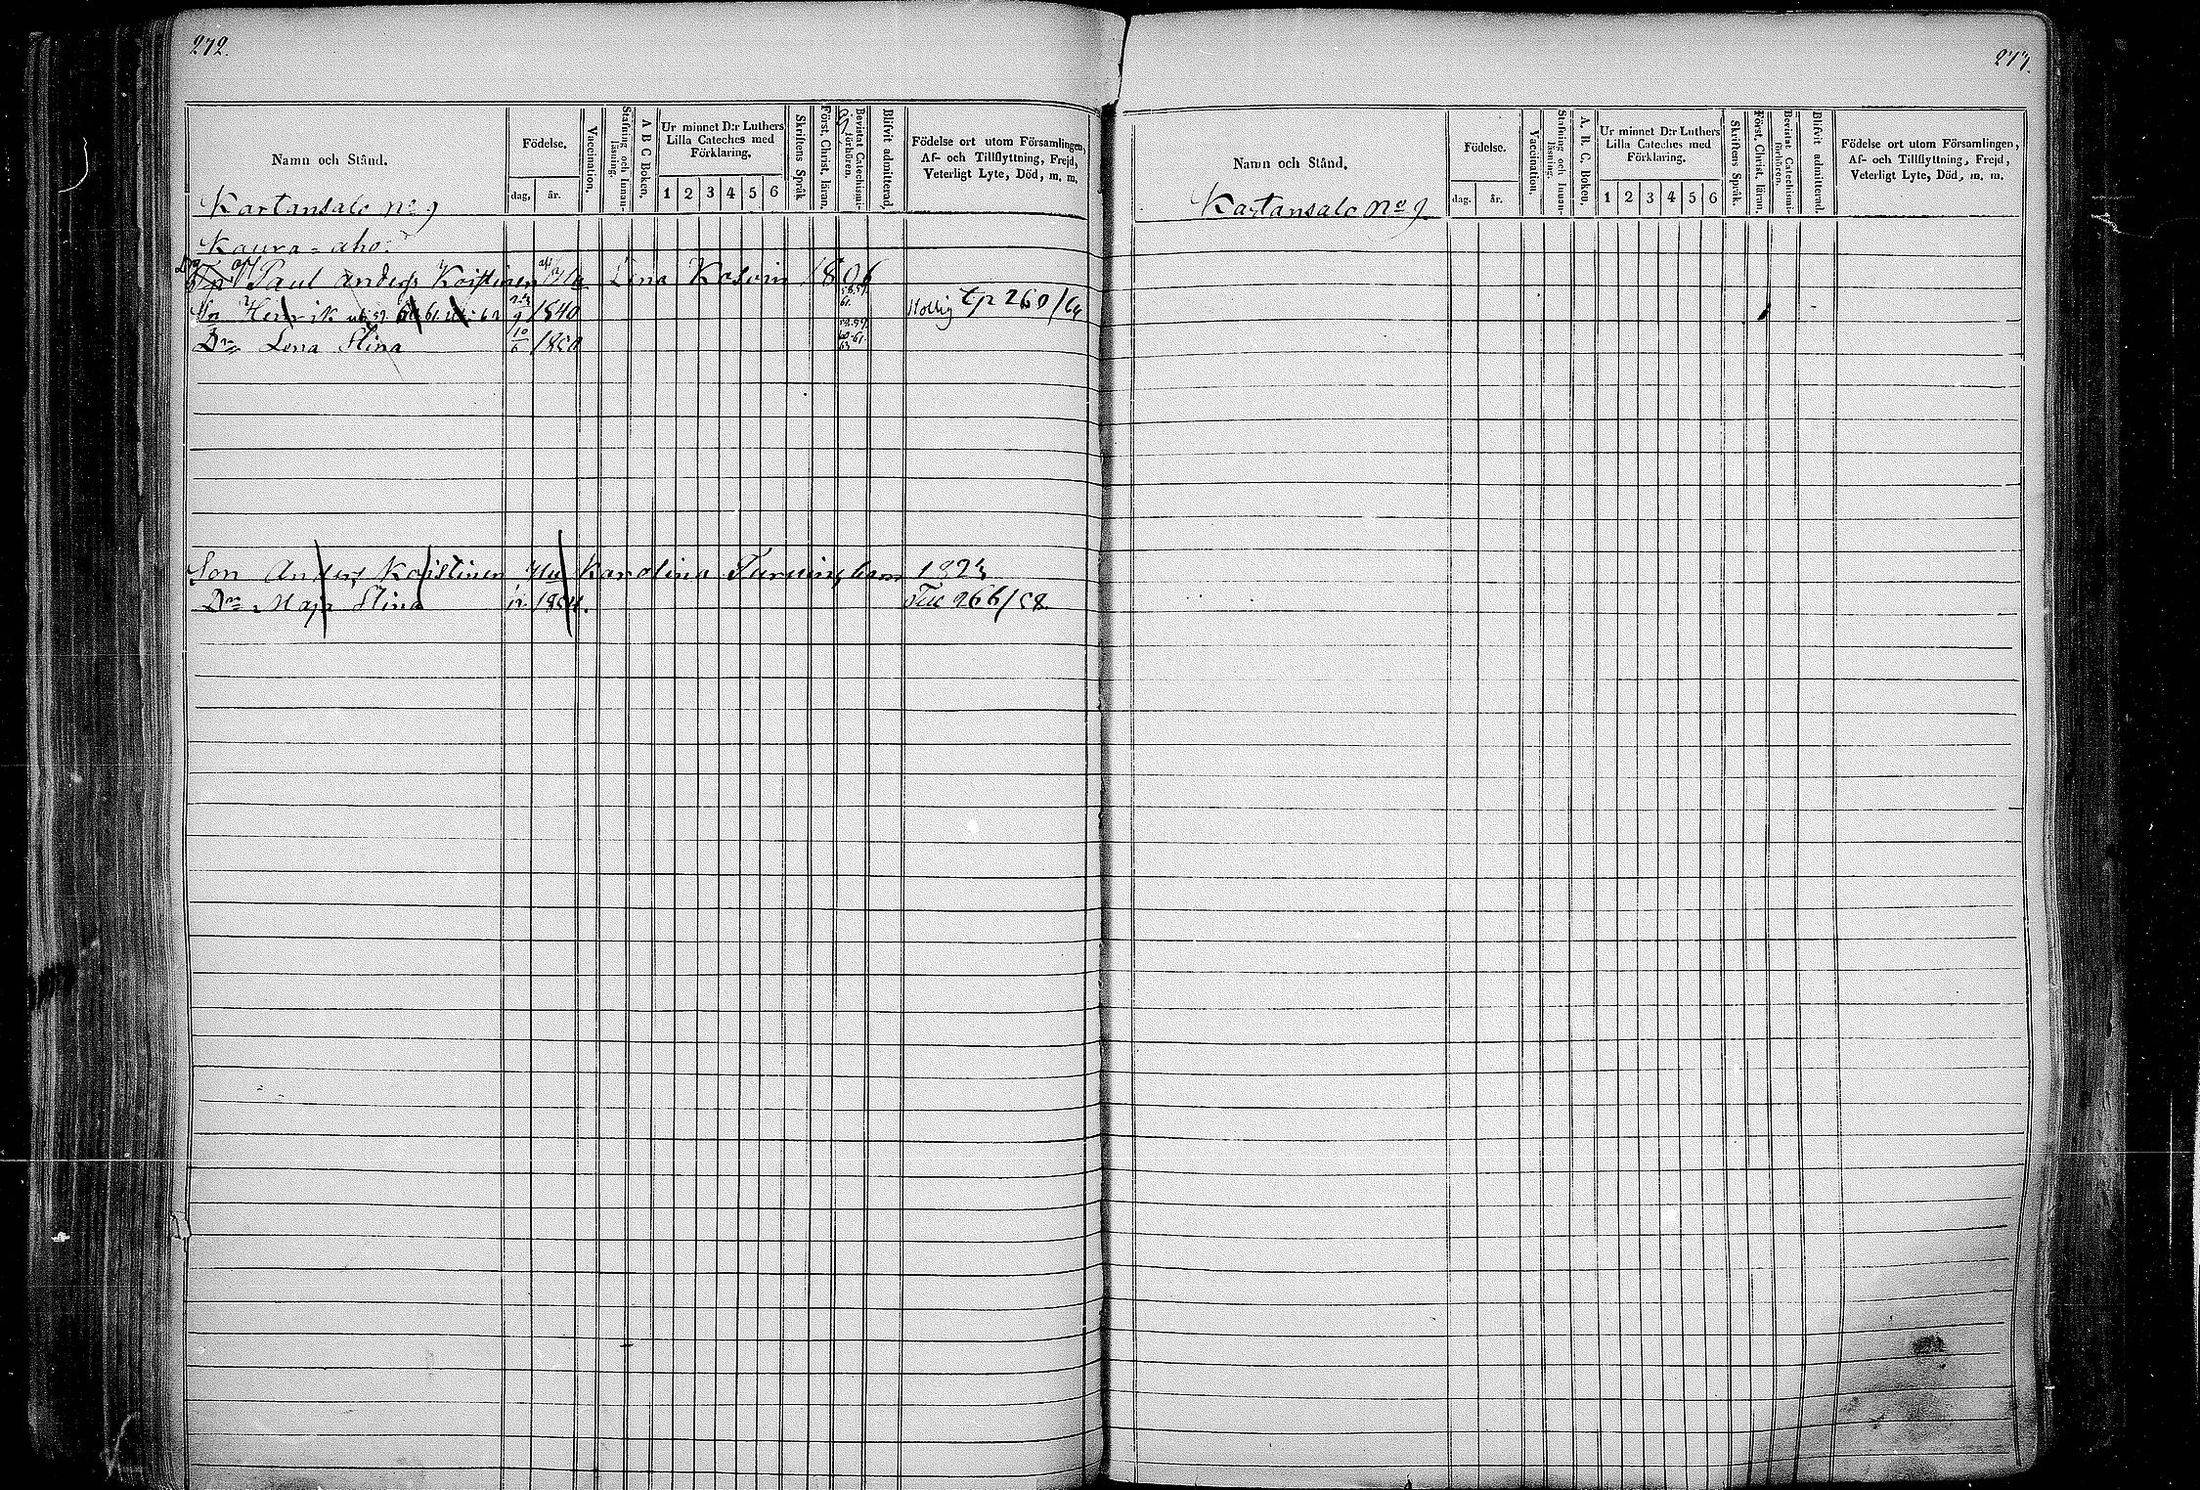 272.
Namn och Stånd.
Födelse.
dag,
år.
Vaccination.
Stafning och Innan-
läsning.
A B C Boken.
Ur minnet D:r Luthers
Lilla Cateches med
Förklaring.
1 2 3 4 5 6
Skriftens Språk
Först. Christ. läran.
Bevistat Catechismi-
förhören.
Blifvit admitterad.
Födelse ort utom Församlingen,
Af- och Tillflyttning, Frejd,
Veterligt Lyte, Död, m. m.
Kartansalo No 9
Kaura-aho.
Paul Anders Koistinen Lena Kosvin 1806
Sn Henrik 1840 tp 260/64
Dr Lena Stina 10/6 1850
Son Anders Koistinen Hu Karolina 1823
Dr Maja Stina 266/58
273.
Namn och Stånd.
Födelse.
dag.
år.
Vaccination.
Stafning och Innan-
läsning.
A. B. C. Boken.
Ur minnet D:r Luthers
Lilla Cateches med
Förklaring.
1 2 3 4 5 6
Skriftens Språk.
Först. Christ. läran.
Bevistat Catechismi-
förhören.
Blifvit admitterad.
Födelse ort utom Församlingen,
Af- och Tillflyttning, Frejd,
Veterligt Lyte, Död, m. m.
Kartansalo No 9